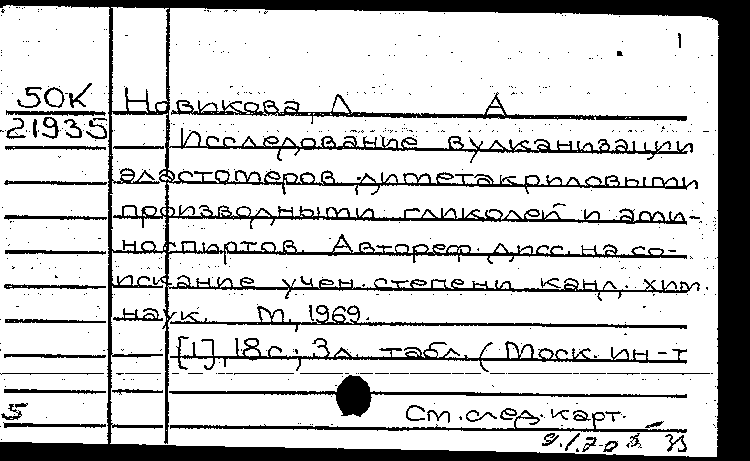 1
50К Новикова, Л А
21935
Исследование вулканизации
эластомеров диметакриловыми
производными гликолей и ами-
носпиртов. Автореф. дисс. на со-
искание учен. степени канд. хим.
наук. М., 1969.
[1], 18 с.; 3 л. табл. (Моск. ин-т
См. след. карт.
5